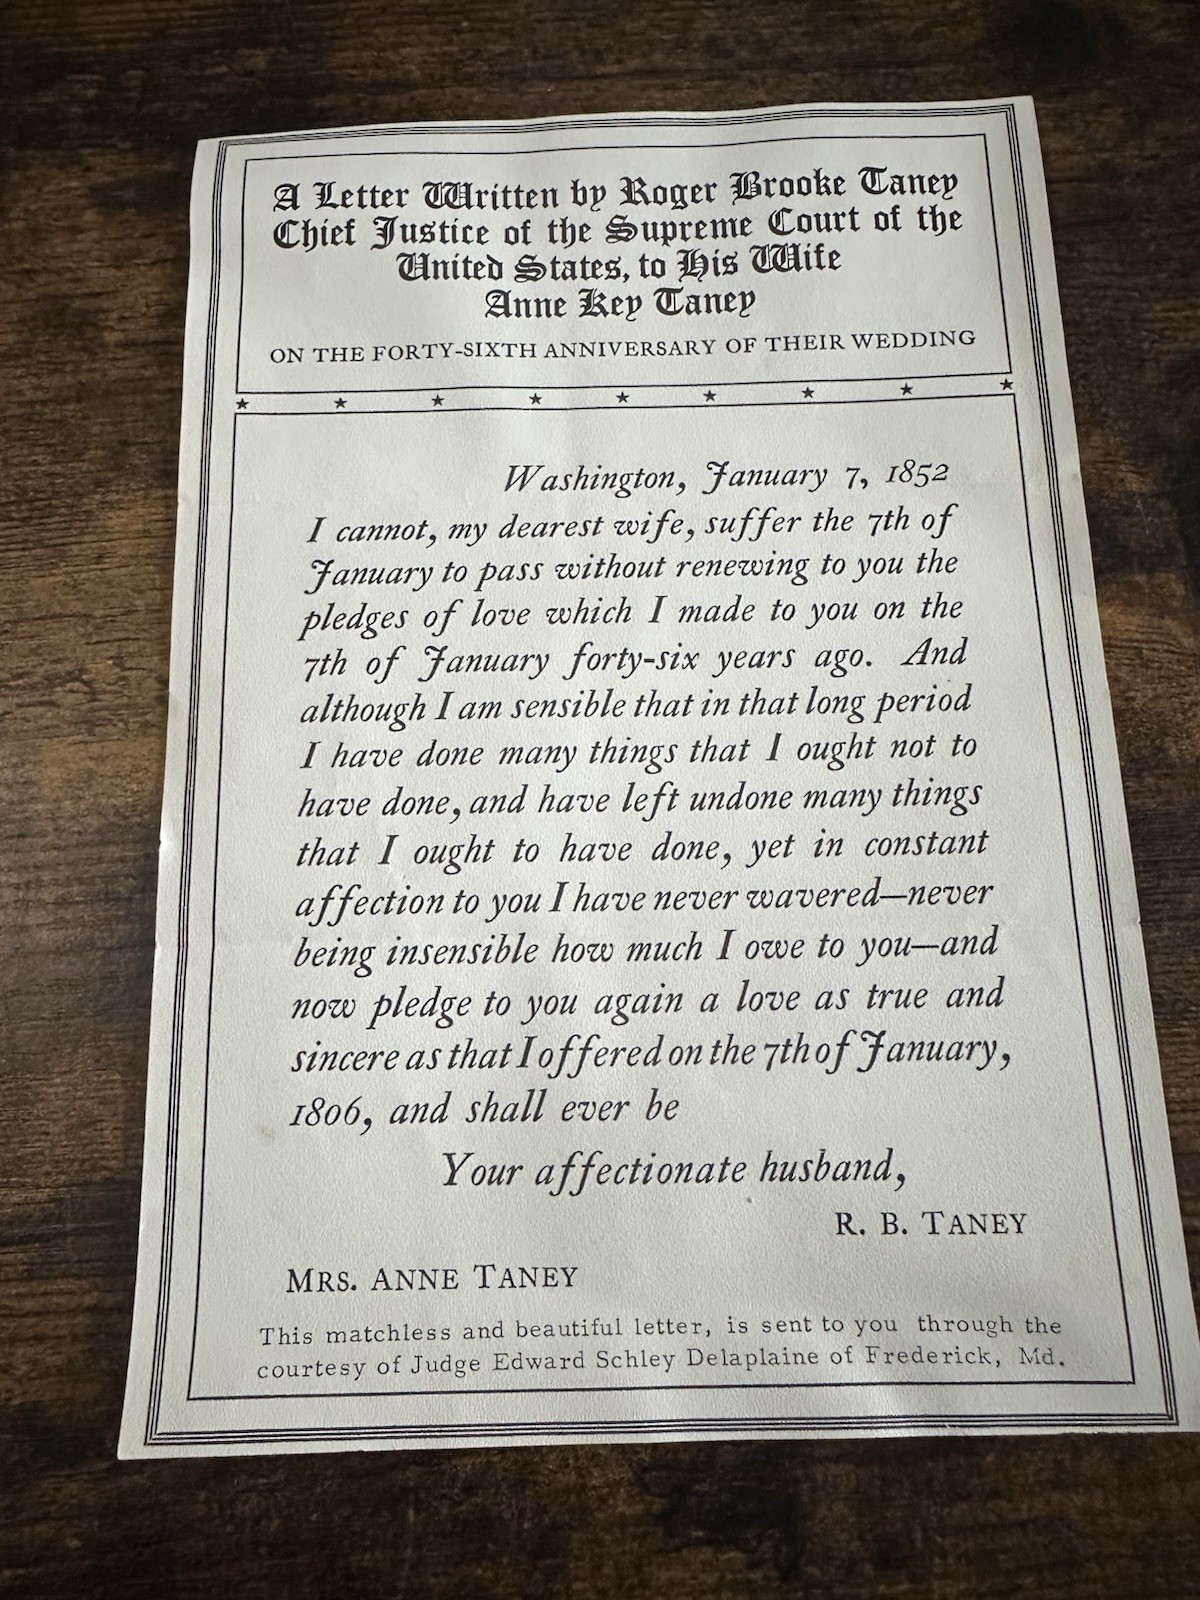 A Letter Written by Roger Brooke Taney
Chief Justice of the Supreme Court of the
United States, to His Wife
Anne Key Taney
ON THE FORTY-SIXTH ANNIVERSARY OF THEIR WEDDING
Washington, January 7, 1852
I cannot, my dearest wife, suffer the 7th of
January to pass without renewing to you the
pledges of love which I made to you on the
7th of January forty-six years ago. And
although I am sensible that in that long period
I have done many things that I ought not to
have done, and have left undone many things
that I ought to have done, yet in constant
affection to you I have never wavered—never
being insensible how much I owe to you—and
now pledge to you again a love as true and
sincere as that I offered on the 7th of January,
1806, and shall ever be
Your affectionate husband,
R. B. TANEY
MRS. ANNE TANEY
This matchless and beautiful letter, is sent to you through the
courtesy of Judge Edward Schley Delaplaine of Frederick, Md.